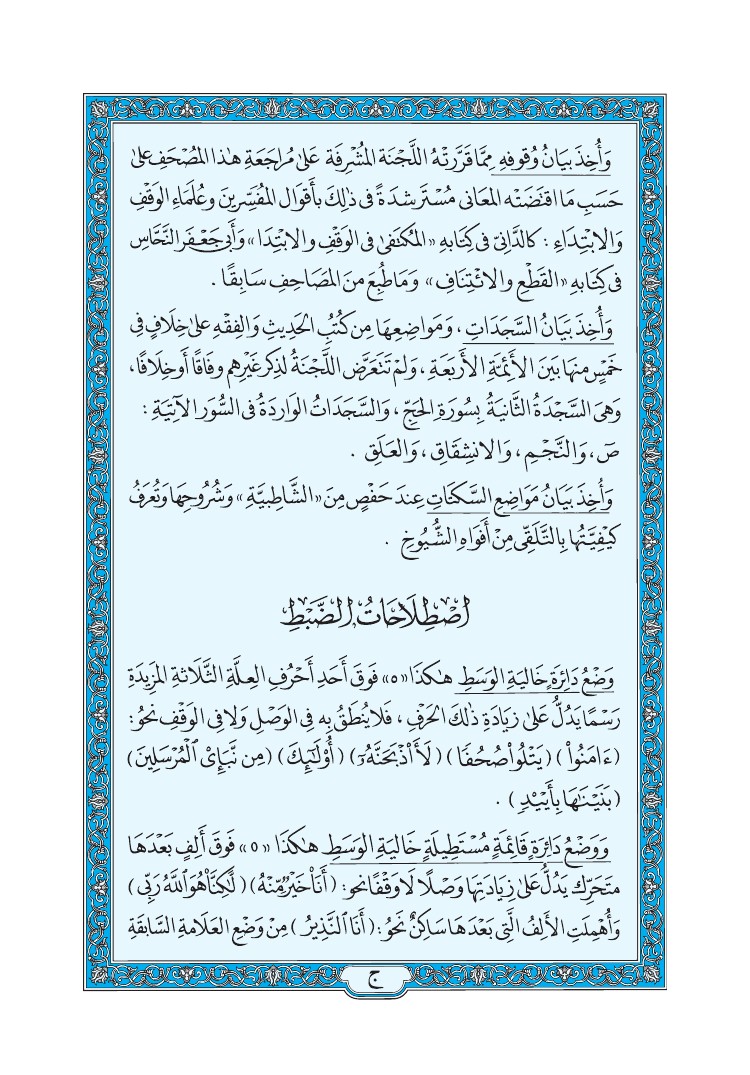 وَأُخِذَ بَيَانُ وُقُوفِهِ مِمَّا قَرَّرَتْهُ اللَّجْنَة المُشْرِفَة عَلَى مُرَاجَعَةِ هٰذا المُصْحَفِ عَلَى
حَسَبِ مَا اقتَضَتْه المَعَانى مُسْتَرشدَةً فى ذٰلِكَ بأَقوال المُفَسِّرِينَ وعُلَمَاءِ الوَقْفِ
وَالابْتِدَاءِ : كالدَّانِىِّ فى كِتَابهِ «المُكتَفَىٰ فى الوَقْفِ والابْتِدَا» وَأَبِى جَعْفَر النَّحَّاسِ
فى كِتَابهِ «القَطْعِ والائْتِنَافِ» وَمَا طُبِعَ منَ المَصَاحِفِ سَابقًا .
وَأُخِذَ بَيَانُ السَّجَدَاتِ ، وَمَوَاضِعِهَا مِن كُتُبِ الحَدِيثِ وَالفِقْهِ عَلىٰ خِلَافٍ فى
خَمْسٍ منهَا بَيْنَ الأَئِمَّةِ الأَرْبَعَةِ ، وَلَمْ تَتَعَرَّض اللَّجْنَةُ لذِكرِ غَيْرِهِم وِفَاقًا أَو خِلَافًا ،
وَهىَ السَّجْدَةُ الثَّانيَةُ بِسُورَةِ الحَجِّ ، وَالسَّجَدَاتُ الوَاردَةُ فى السُّوَر الآتِيَةِ :
صٓ ، وَالنَّجْمِ ، وَالانشِقَاقِ ، وَالعَلَقِ .
وَأُخِذَ بَيَانُ مَوَاضِعِ السَّكتَاتِ عِندَ حَفْصٍ مِنَ «الشَّاطِبيَّةِ» وَشُرُوحِهَا وَتُعرَفُ
كَيْفِيَّتُها بِالتَّلَقِّى مِنْ أَفوَاهِ الشُّيُوخِ .
اصْطِلَاحَاتُ الضَّبْطِ
وَضْعُ دَائِرَةٍ خَاليَةِ الوَسَطِ هٰكذَا «ه» فَوقَ أَحَدِ أَحْرُفِ العِلَّةِ الثَّلَاثةِ المَزِيدَةِ
رَسْمًا يَدُلُّ عَلىٰ زيَادَةِ ذٰلكَ الحَرْفِ ، فَلَا يُنطَقُ بِهِ فى الوَصْلِ وَلَا فى الوَقْفِ نحوُ :
(ءَامَنُواْ) (يَتْلُواْ صُحُفًا) (لَأَاْذْبَحَنَّهُۥٓ) (أُوْلَٰٓئِكَ) (مِن نَّبَإِيْ ٱلْمُرْسَلِينَ)
(بَنَيْنَٰهَا بِأَيْيْدٖ) .
وَوَضْعُ دَائِرَةٍ قَائِمَةٍ مُسْتَطِيلَةٍ خَاليَةِ الوَسَطِ هٰكَذَا «٥» فَوقَ أَلِفٍ بَعْدَهَا
متَحَرِّك يَدُلُّ عَلىٰ زِيَادَتِهَا وَصْلًا لَا وَقْفًا نحو : (أَنَا۠ خَيْرٌ مِّنْهُ) (لَّٰكِنَّا۠ هُوَ ٱللَّهُ رَبِّى)
وَأُهْمِلَتِ الأَلِفُ الَّتِى بَعْدَهَا سَاكِنٌ نَحوُ : (أَنَا ٱلنَّذِيرُ) مِنْ وَضْعِ العَلَامَةِ السَّابقَةِ
ج